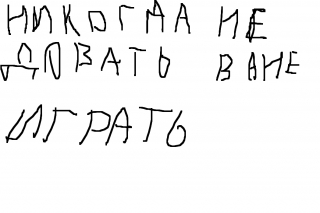 НИКОГДА НЕ
ДОВАТЬ ВАНЕ
ИГРАТЬ